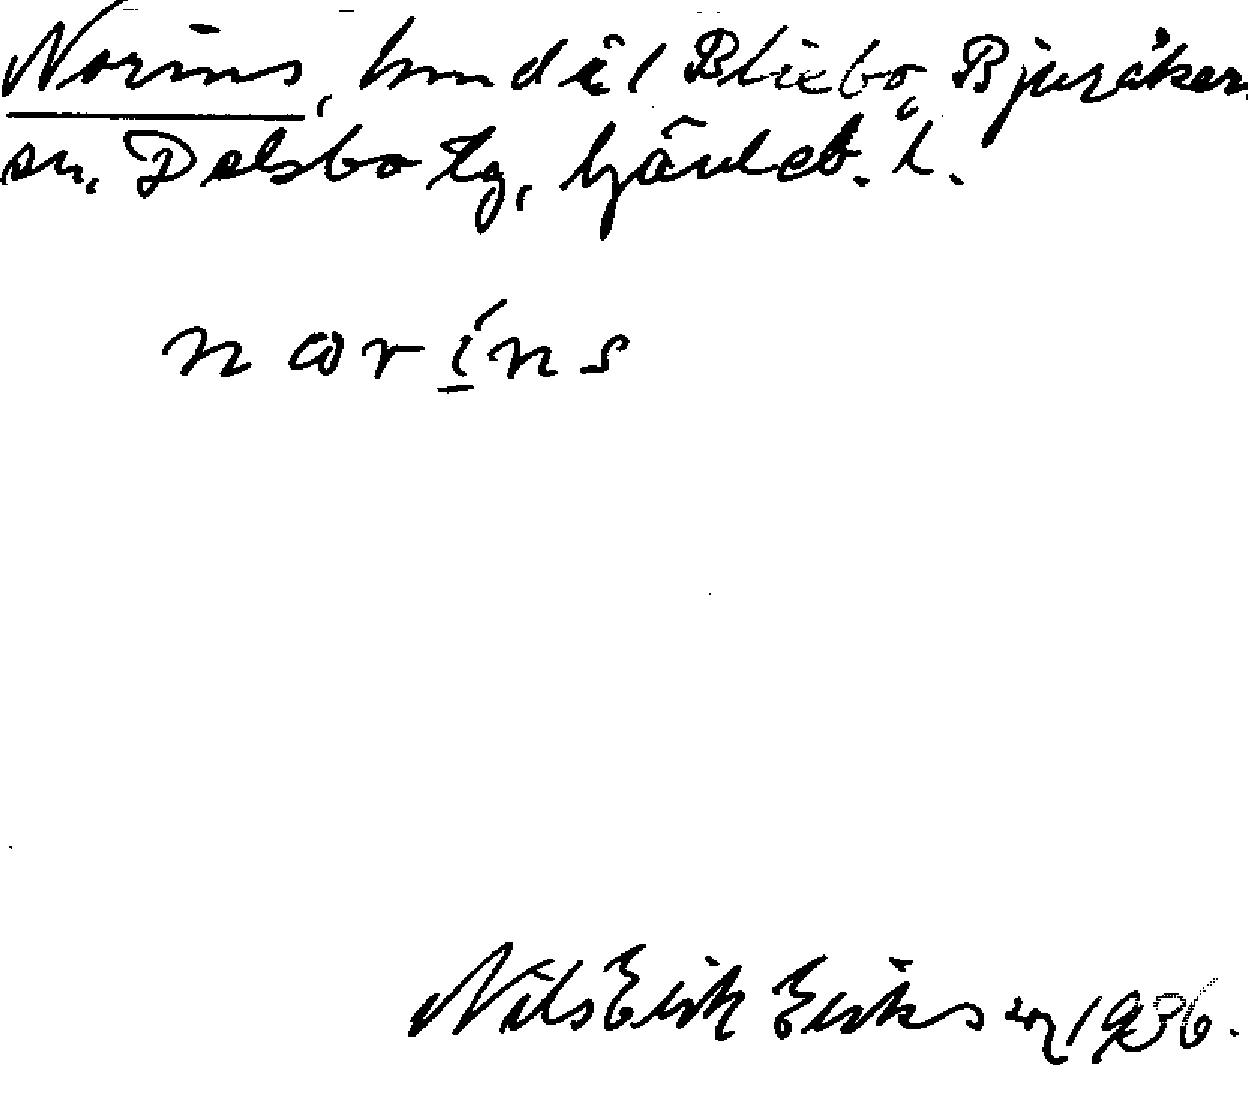 Norins, hmd i Bliebo, Bjuråker
sn. Delsbo tg, Gävleb. l.
n ω r í n s
Nils Erik Eriksson 1936.